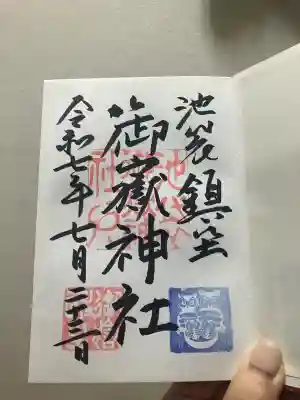 池袋鎮座
御嶽神社
令和七年七月二十三日